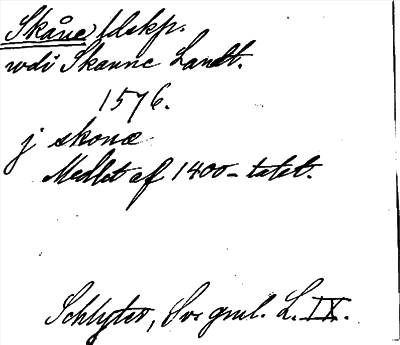 Skåne, ldskp.
udi Skanne Landt.
1576.
j skonæ
Medlet af 1400-talet.
Schlyter, Sv. gml. L. IX.